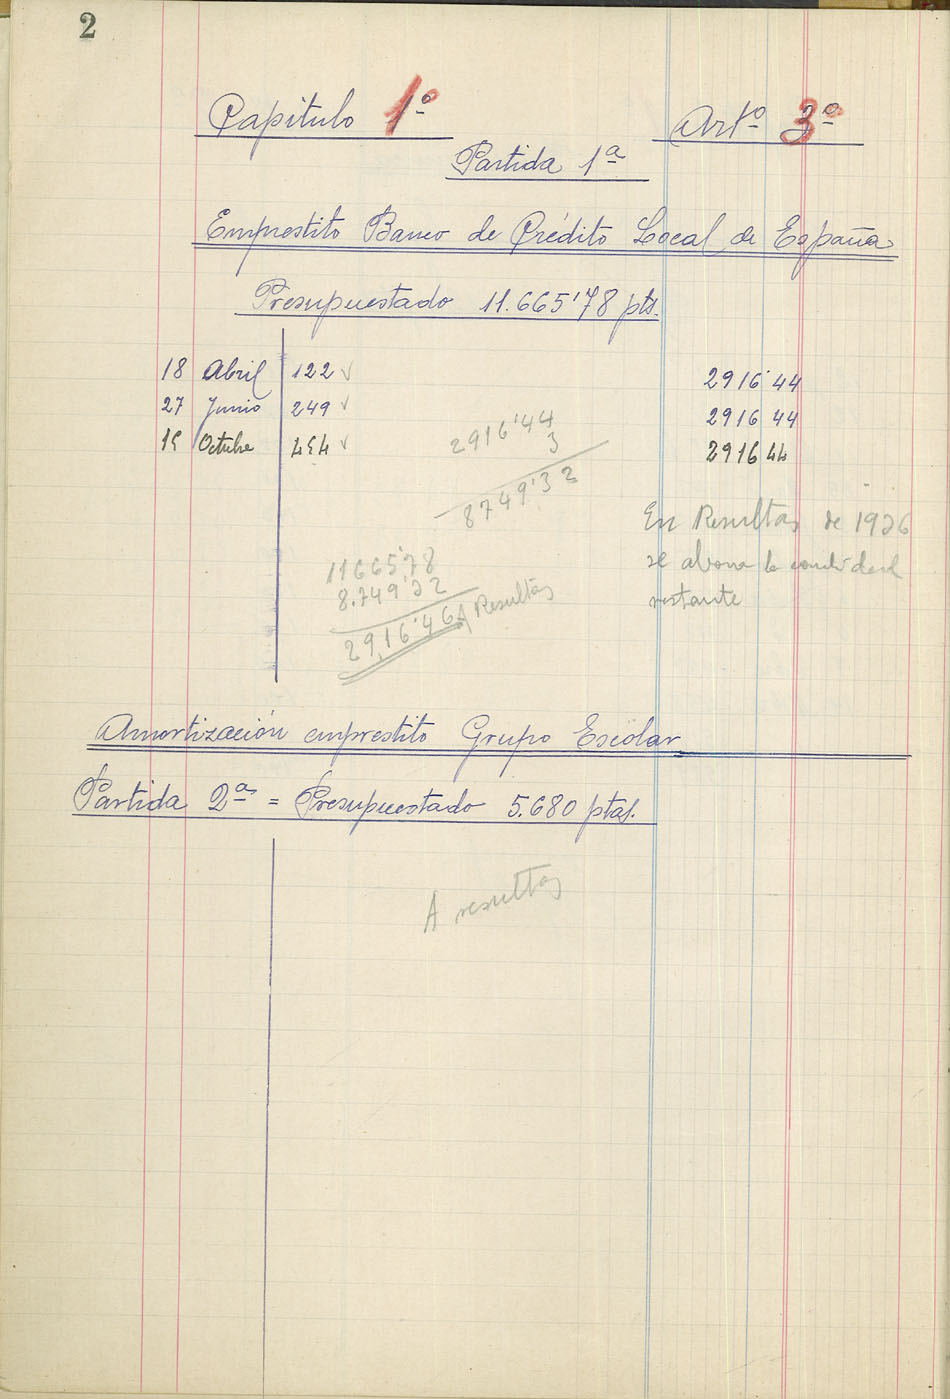 2
Capitulo 1º Artº 3º
Partida 1ª
Emprestito Banco de Crédito Local de España
Presupuestado 11.665'78 pts.
18 Abril 122 √ 2916'44
27 Junio 249 √ 2916 44
15 Octubre 454 √ 2916 44
2916'44
3
8749'32
En Resultas de 1936
se abona la cantidad
restante
11665'78
8.749'32
2916'46 A Resultas
Amortización emprestito Grupo Escolar
Partida 2ª = Presupuestado 5.680 ptas.
A resultas